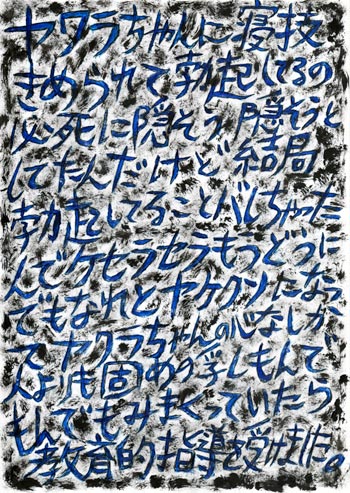 ヤワラちゃんに寝技
きめられて勃起してるの
必死に隠そう隠そうと
してたんだけど結局
勃起してることバレちゃった
んでケセラセラもうどうに
でもなれとヤケクソになっ
てヤワラちゃんの心なしか
人より固めの乳もんで
もんでもみまくっていたら
教育的指導を受けました。